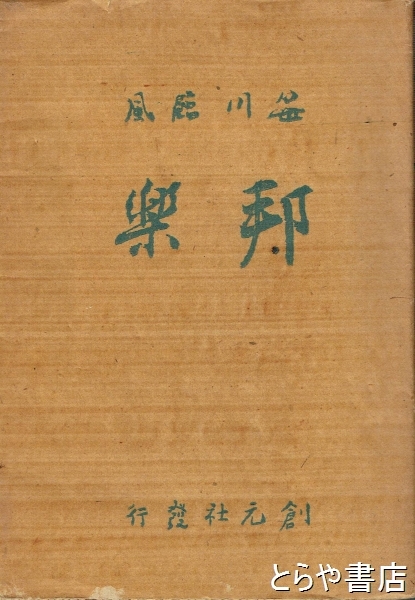 笹川臨風
邦樂
創元社發行
とらや書店